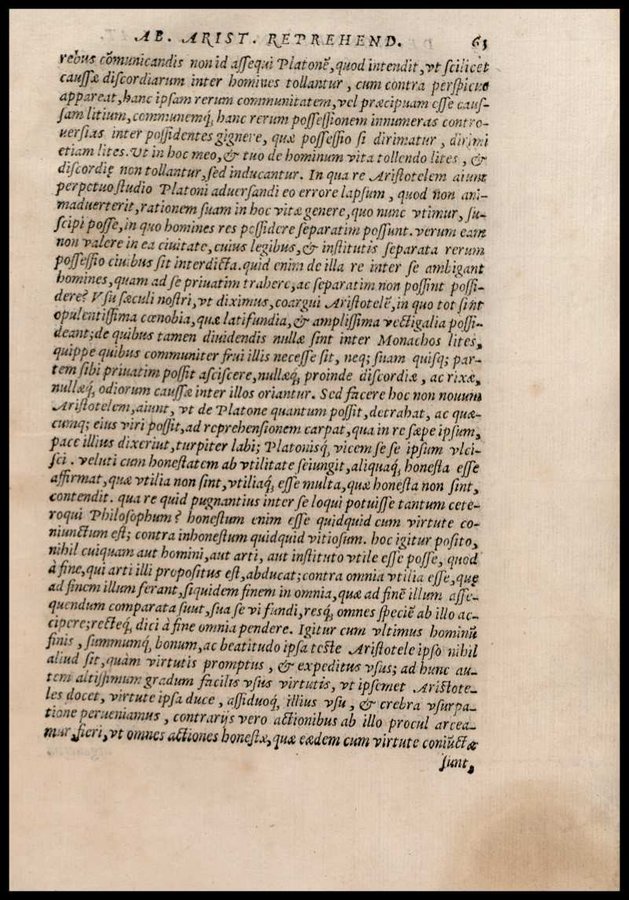 AB. ARIST. REPREHEND. 63
rebus cõmunicandis non id assequi Platonẽ, quod intendit, vt scilicet
caussæ discordiarum inter homines tollantur, cum contra perspicue
appareat, hanc ipsam rerum communitatem, vel præcipuam esse caus-
sam litium, communemq́, hanc rerum possessionem innumeras contro-
uersias inter possidentes gignere, quæ possessio si dirimatur, dirimi
etiam lites. Vt in hoc meo, & tuo de hominum vita tollendo lites, &
discordię non tollantur, sed inducantur. In qua re Aristotelem aiunt
perpetuo studio Platoni aduersandi eo errore lapsum, quod non ani-
maduerterit, rationem suam in hoc vitæ genere, quo nunc vtimur, su-
scipi posse, in quo homines res possidere separatim possunt. verum eam
non valere in ea ciuitate, cuius legibus, & institutis separata rerum
possessio ciuibus sit interdicta. quid enim de illa re inter se ambigant
homines, quam ad se priuatim trahere, ac separatim non possint possi-
dere? Vsu sæculi nostri, vt diximus, coargui Aristotelẽ, in quo tot sint
opulentissima cœnobia, quæ latifundia, & amplissima vectigalia possi-
deant; de quibus tamen diuidendis nullæ sint inter Monachos lites,
quippe quibus communiter frui illis necesse sit, neq; suam quisq; par-
tem sibi priuatim possit asciscere, nullæq́, proinde discordiæ, ac rixæ,
nullæq́, odiorum caussæ inter illos oriantur. Sed facere hoc non nouum
Aristotelem, aiunt, vt de Platone quantum possit, detrahat, ac quæ-
cumq; eius viri possit, ad reprehensionem carpat, qua in re sæpe ipsum,
pace illius dixerint, turpiter labi; Platonisq́, vicem se se ipsum vlci-
sci. veluti cum honestatem ab vtilitate seiungit, aliquaq́, honesta esse
affirmat, quæ vtilia non sint, vtiliaq́, esse multa, quæ honesta non sint,
contendit. qua re quid pugnantius inter se loqui potuisse tantum cete-
roqui Philosophum? honestum enim esse quidquid cum virtute co-
niunctum est; contra inhonestum quidquid vitiosum. hoc igitur posito,
nihil cuiquam aut homini, aut arti, aut instituto vtile esse posse, quod
à fine, qui arti illi propositus est, abducat; contra omnia vtilia esse, que
ad finem illum ferant, siquidem finem in omnia, quæ ad finẽ illum asse-
quendum comparata sunt, sua se vi fundi, resq́, omnes speciẽ ab illo ac-
cipere; recteq́, dici à fine omnia pendere. Igitur cum vltimus hominũ
finis, summumq́, bonum, ac beatitudo ipsa teste Aristotele ipso nihil
aliud sit, quàm virtutis promptus, & expeditus vsus; ad hunc au-
tem altissimum gradum facilis vsus virtutis, vt ipsemet Aristote-
les docet, virtute ipsa duce, assiduoq́, illius vsu, & crebra vsurpa-
tione perueniamus, contrarijs vero actionibus ab illo procul arcea-
mur, fieri, vt omnes actiones honestæ, quæ eædem cum virtute coniũctæ
sunt,